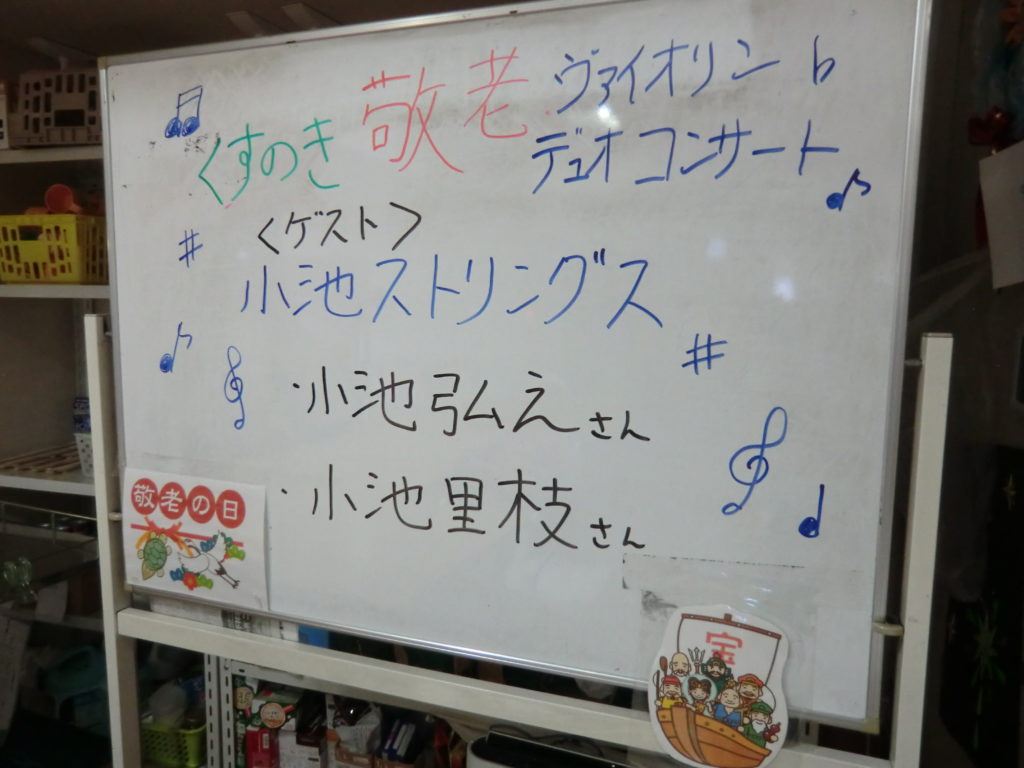 くすのき 敬老 ヴァイオリン
デュオコンサート
<ゲスト>
小池ストリングス
・小池弘えさん
・小池里枝さん
敬老の日
宝